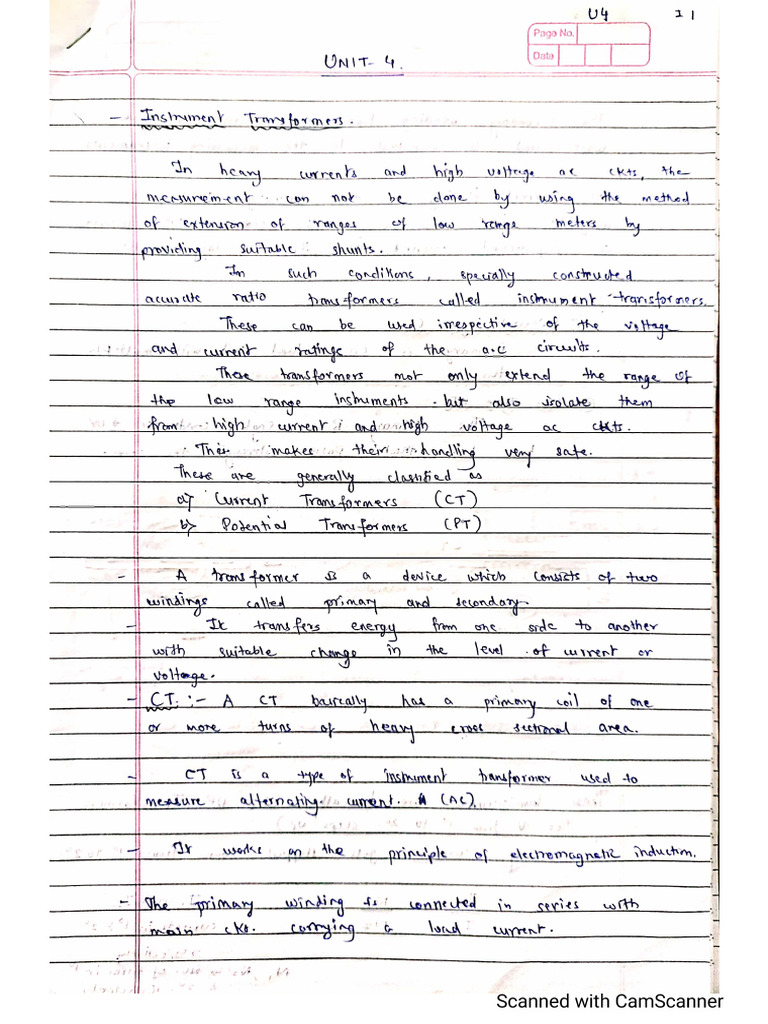 U4 11
Page No.
Date
UNIT-4.
- Instrument Transformers.
In heavy currents and high voltage ac ckts, the
measurement can not be done by using the method
of extension of ranges of low range meters by
providing suitable shunts.
In such conditions, specially constructed
accurate ratio transformers called instrument transformers.
These can be used irrespective of the voltage
and current ratings of the a.c circuits.
These transformers not only extend the range of
the low range instruments but also isolate them
from high current and high voltage ac ckts.
This makes their handling very safe.
These are generally classified as
a) Current Transformers (CT)
b) Potential Transformers (PT)
- A transformer is a device which consists of two
windings called primary and secondary.
- It transfers energy from one side to another
with suitable change in the level of current or
voltage.
- CT :- A CT basically has a primary coil of one
or more turns of heavy cross sectional area.
- CT is a type of instrument transformer used to
measure alternating current. (AC).
- It works on the principle of electromagnetic induction.
- The primary winding is connected in series with
main ckt. carrying a load current.
Scanned with CamScanner